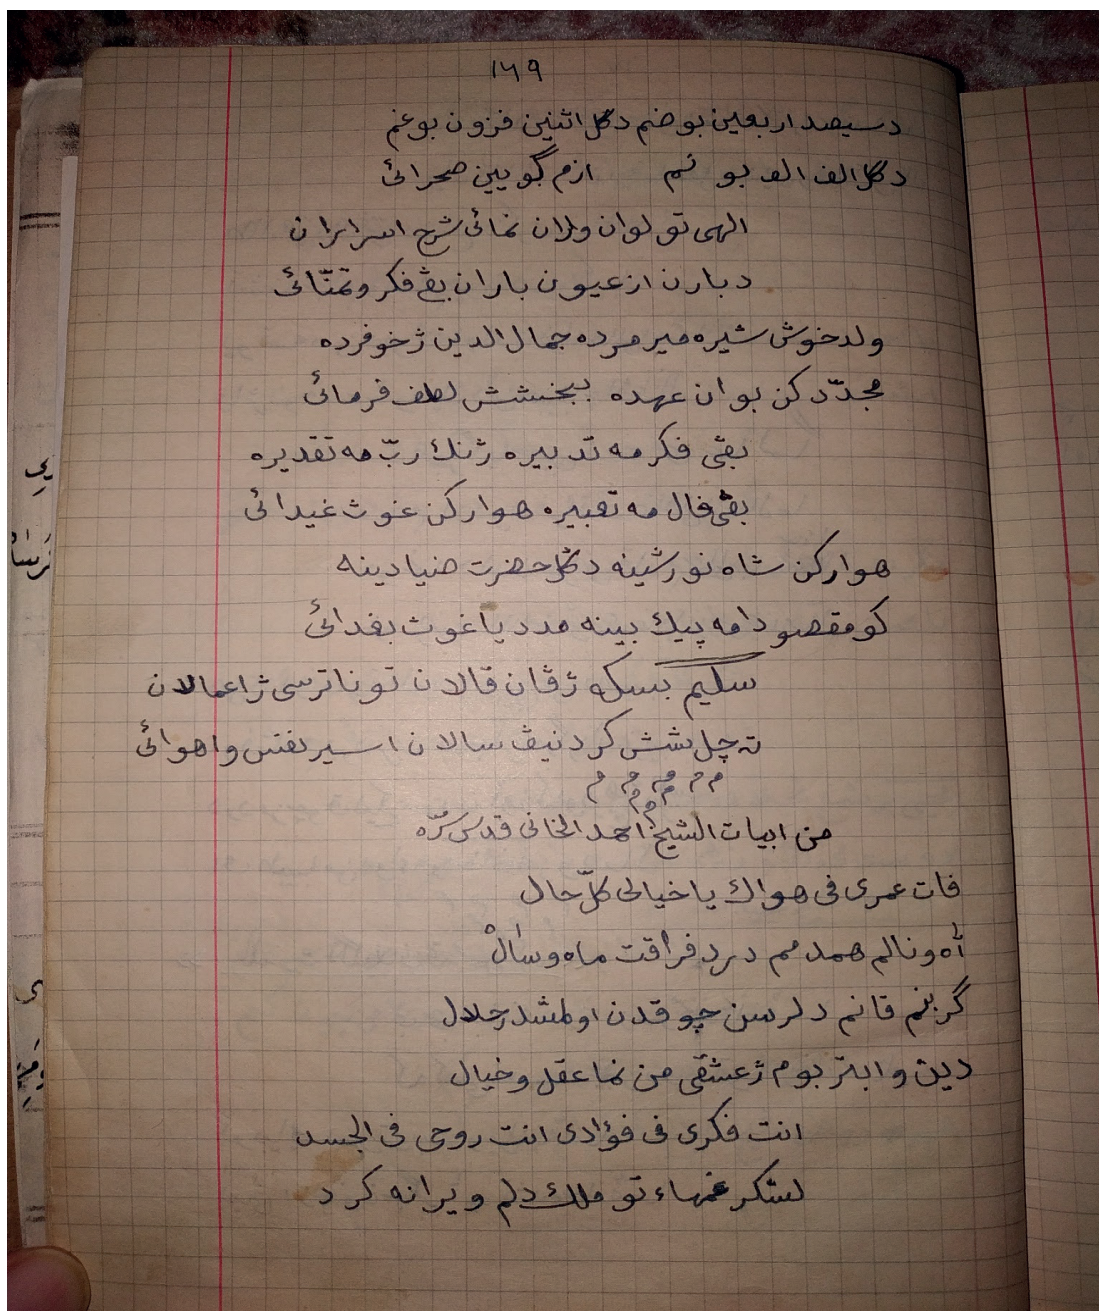 ١٦٩
دسیصد اربعین بو ضم دگل اثنین فزون بو غم
دگل الف الف بو ئم ازم گو یین صحرائی
الهی تو لوان ولران نمائی شرح اسراران
دبارن از عیون باران بڤی فکر و تمنّائی
ولد خوش شیره میر مرده جمال الدین ژخو فرده
مجدّد کن بوان عهده ببخشش لطف فرمائی
بڤی فکر مه تدبیره ژنك ربّ مه تقدیره
بڤی فال مه تعبیره هوار کن غوث غیدائی
هوار کن شاه نورشینه دگل حضرت ضیادینه
کو مقصودا مه پیك بینه مدد یا غوث بغدائی
سلیم بسکه ژڤان قالان تو ناترسی ژاعمالان
ته چل شش کرد نیڤ سالان اسیر نفس واهوائی
م م م م م م م م
من ابیات الشیخ احمد الخانی قدس سرّه
فات عمری فی هواك یا خیالی کلّ حال
آه و نالم همدمم درد فراقت ماه وسالْ
گر بنم قانم دلرسن چوقدن اولمشدر حلال
دین و ابتر بوم ژعشقی من نما عقل و خیال
انت فکری فی فؤادی انت روحی فی الجسد
لشکر غمهاء تو ملك دلم ویرانه کرد